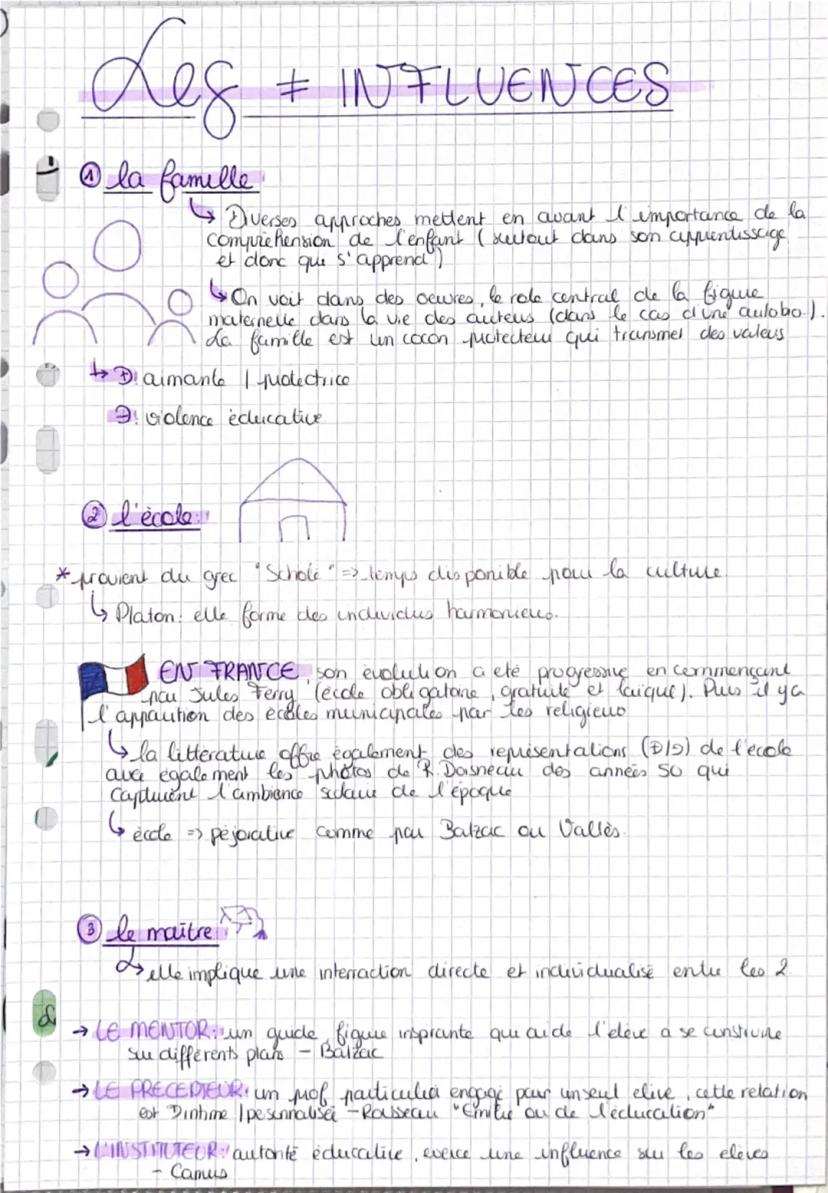 Les ≠ INFLUENCES
① la famille
↳ Diverses approches mettent en avant l'importance de la
compréhension de l'enfant (surtout dans son apprentissage
et donc qui s'apprend)
↳ On voit dans des oeuvres, le role central de la figure
maternelle dans la vie des auteurs (dans le cas d'une autobio).
La famille est un cocon protecteur qui transmet des valeurs
↳ ⊕: aimante / protectrice
⊖: violence éducative
② l'école:
* provient du grec "Scholé" => temps disponible pour la culture
↳ Platon: elle forme des individus harmonieux.
EN FRANCE, son évolution a été progressive en commençant
par Jules Ferry (école obligatoire, gratuite et laïque). Puis il y a
l'apparition des écoles municipales par les religieux
↳ la littérature offre également des représentations (⊕/⊖) de l'école
avec également les photos de R. Doisneau des années 50 qui
capturent l'ambiance scolaire de l'époque
↳ école => péjorative comme par Balzac ou Vallès.
③ le maître
↳ elle implique une interraction directe et individualisé entre les 2
→ LE MENTOR: un guide, figure insprante qui aide l'élève a se construire
sur différents plans - Balzac
→ LE PRECEPTEUR: un prof particulier engagé pour un seul élève, cette relation
est Dintime / personnalisé - Rousseau "Emile ou de l'éducation"
→ L'INSTITUTEUR: autorité éducative, exerce une influence sur les élèves
- Camus